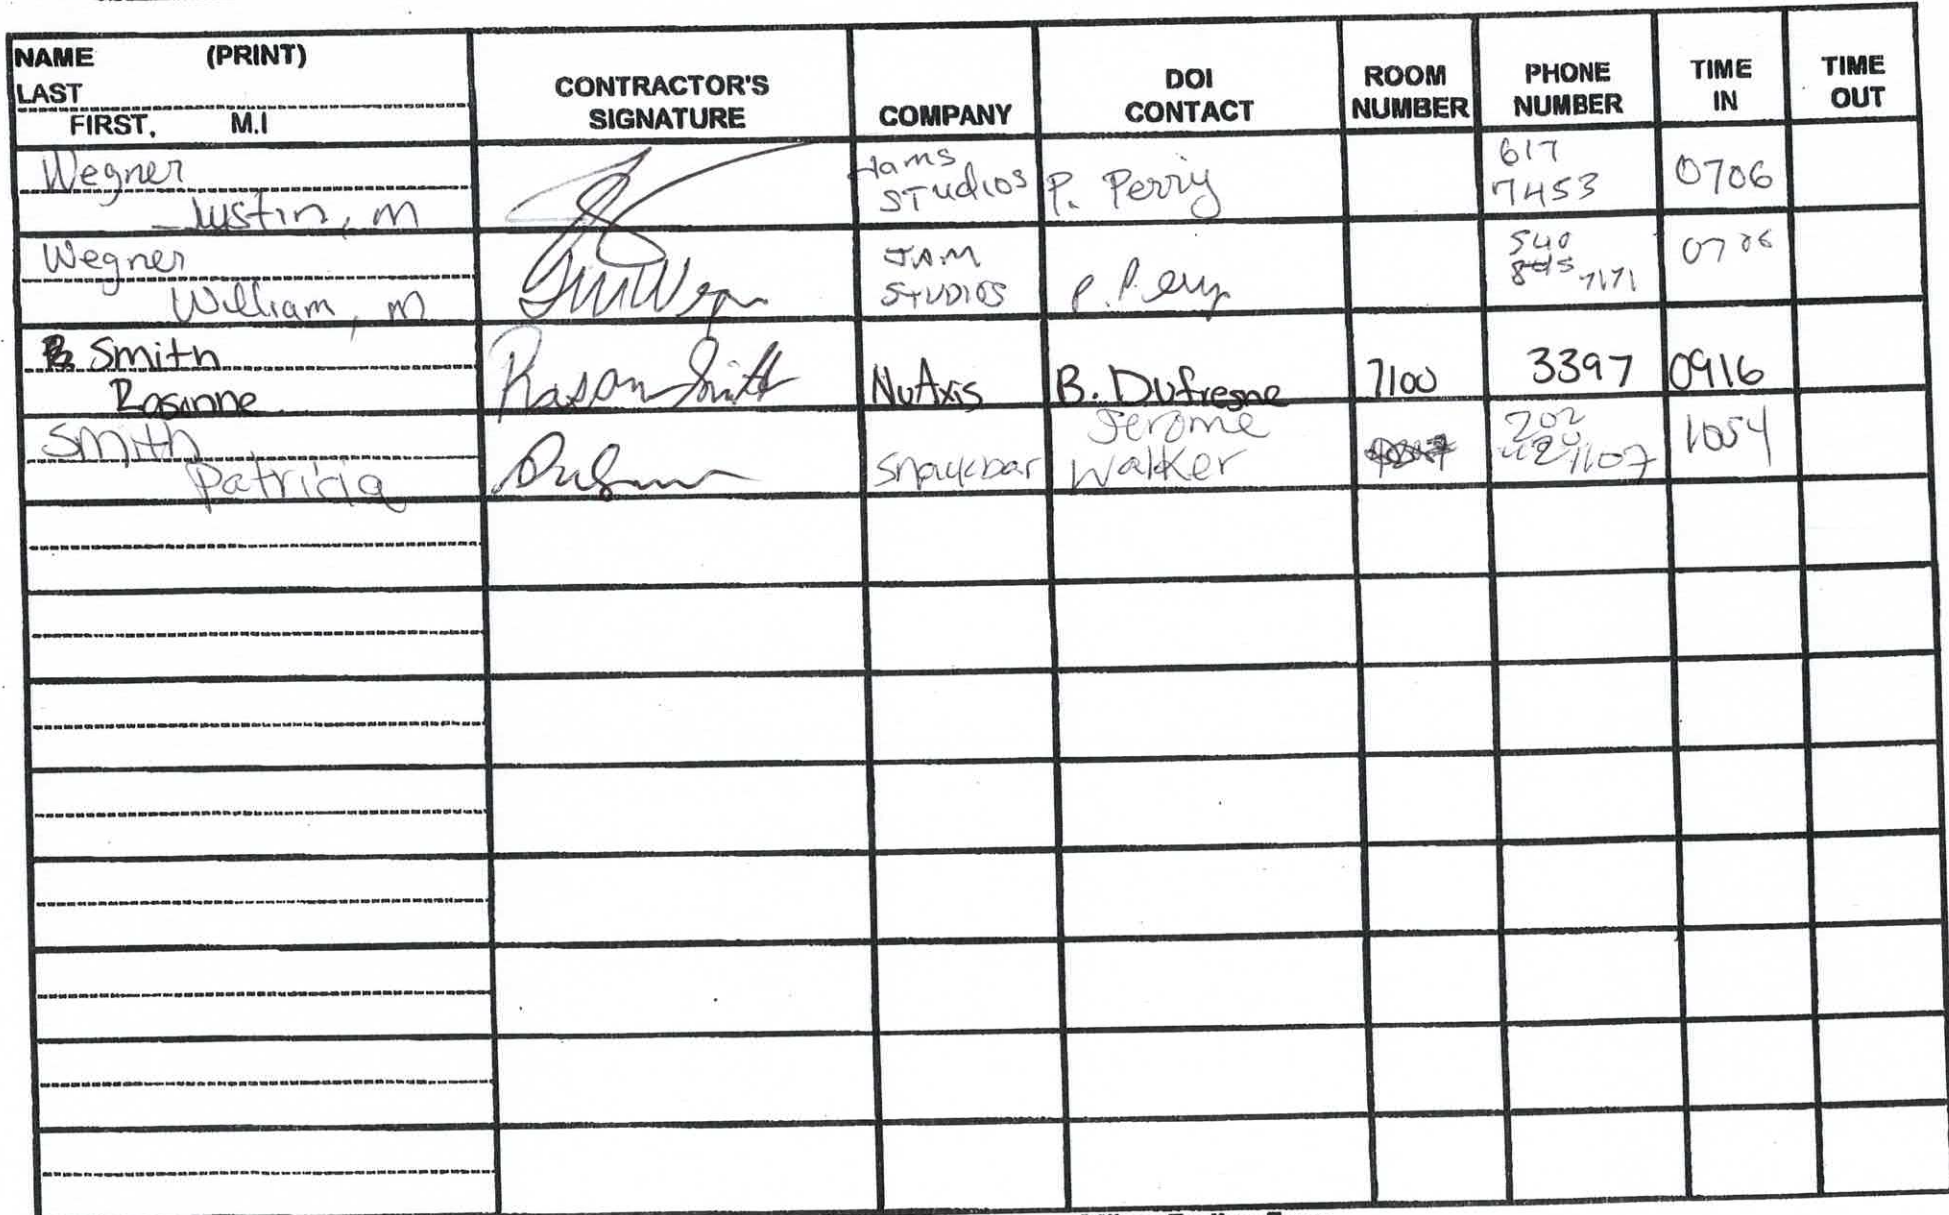 NAME (PRINT)
LAST
FIRST, M.I
CONTRACTOR'S
SIGNATURE
COMPANY
DOI
CONTACT
ROOM
NUMBER
PHONE
NUMBER
TIME
IN
TIME
OUT
Wegner
Justin, m
Hams
STudios
P. Perry
617
7453
0706
Wegner
William, m
JAM
STUDIOS
540
7171
Smith
Rosinne
NuAxis
B. Dufresne
7100
3397
0916
Smith
Patricia
Snackbar
Jerome
Walker
202
1054